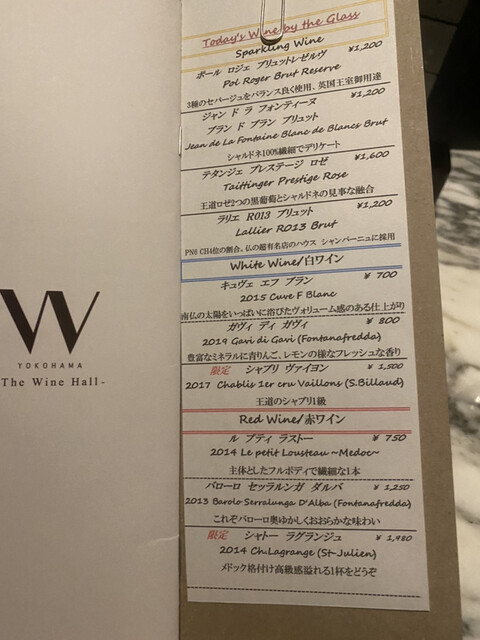 W
YOKOHAMA
-The Wine Hall-
Today's Wine by the Glass
Sparkling Wine
ポール ロジェ ブリュットレゼルヴ ¥1,200
Pol Roger Brut Reserve
3種のセパージュをバランス良く使用、英国王室御用達
ジャン ド ラ フォンティーヌ ¥1,200
ブラン ド ブラン ブリュット
Jean de La Fontaine Blanc de Blancs Brut
シャルドネ100%繊細でデリケート
テタンジェ プレステージ ロゼ ¥1,600
Taittinger Prestige Rose
王道ロゼ2つの黒葡萄とシャルドネの見事な融合
ラリエ R013 ブリュット ¥1,200
Lallier R013 Brut
PN6 CH4位の割合、仏の超有名店のハウス シャンパーニュに採用
White Wine/白ワイン
キュヴェ エフ ブラン ¥ 700
2015 Cuve F Blanc
南仏の太陽をいっぱいに浴びたヴォリューム感のある仕上がり
ガヴィ ディ ガヴィ ¥ 800
2019 Gavi di Gavi (Fontanafredda)
豊富なミネラルに青りんご、レモンの様なフレッシュな香り
限定 シャブリ ヴァイヨン ¥ 1,500
2017 Chablis 1er cru Vaillons (S.Billaud)
王道のシャブリ1級
Red Wine/赤ワイン
ル プティ ラストー ¥ 750
2014 Le petit Lousteau ~Medoc~
主体としたフルボディで繊細な1本
バローロ セッラルンガ ダルバ ¥ 1,250
2013 Barolo Serralunga D'Alba (Fontanafredda)
これぞバローロ奥ゆかしくおおらかな味わい
限定 シャトー ラグランジュ ¥ 1,980
2014 Ch.Lagrange (St-Julien)
メドック格付け高級感溢れる1杯をどうぞ